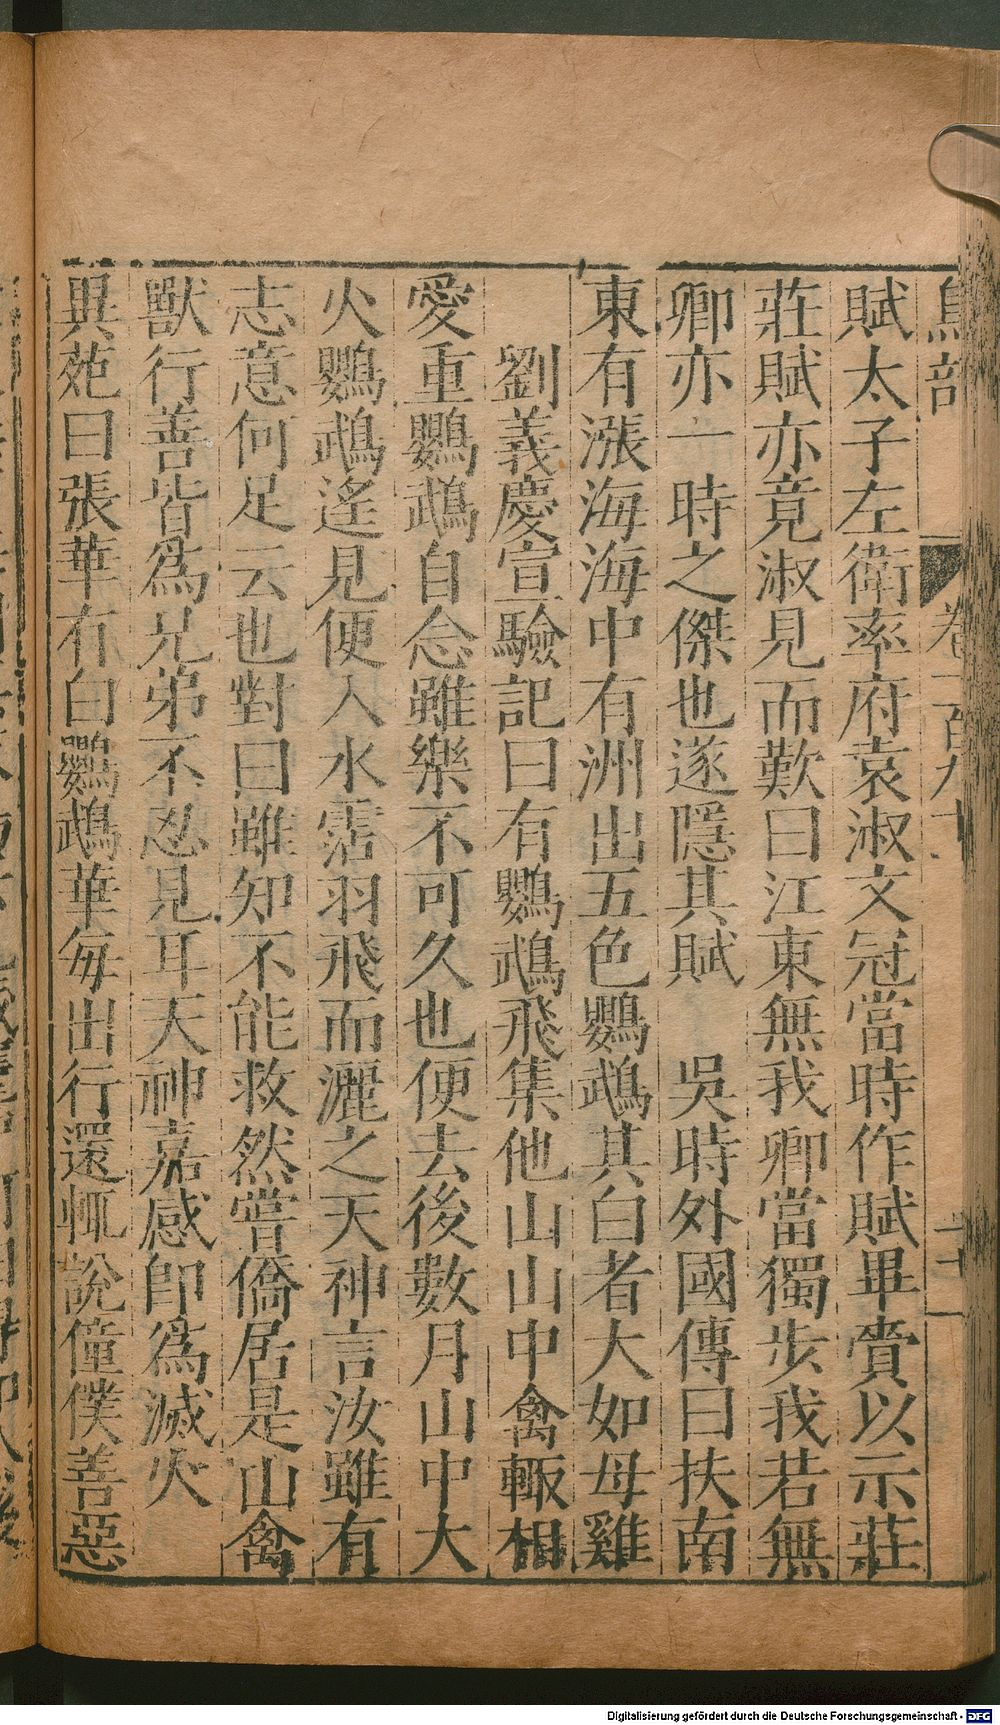 鳥部 卷一百九十
賦太子左衛率府袁淑文冠當時作賦畢賷以示莊
莊賦亦竟淑見而歎曰江東無我卿當獨步我若無
卿亦一時之傑也遂隱其賦 吳時外國傳曰扶南
東有漲海海中有洲出五色鸚鵡其白者大如母雞
劉義慶宣驗記曰有鸚鵡飛集他山山中禽輙相
愛重鸚鵡自念雖樂不可久也便去後數月山中大
火鸚鵡遙見便入水霑羽飛而灑之天神言汝雖有
志意何足云也對曰雖知不能救然嘗僑居是山禽
獸行善皆爲兄弟不忍見耳天神嘉感卽爲滅火
異苑曰張華有白鸚鵡華每出行還輙說僮僕善惡
Digitalisierung gefördert durch die Deutsche Forschungsgemeinschaft - DFG